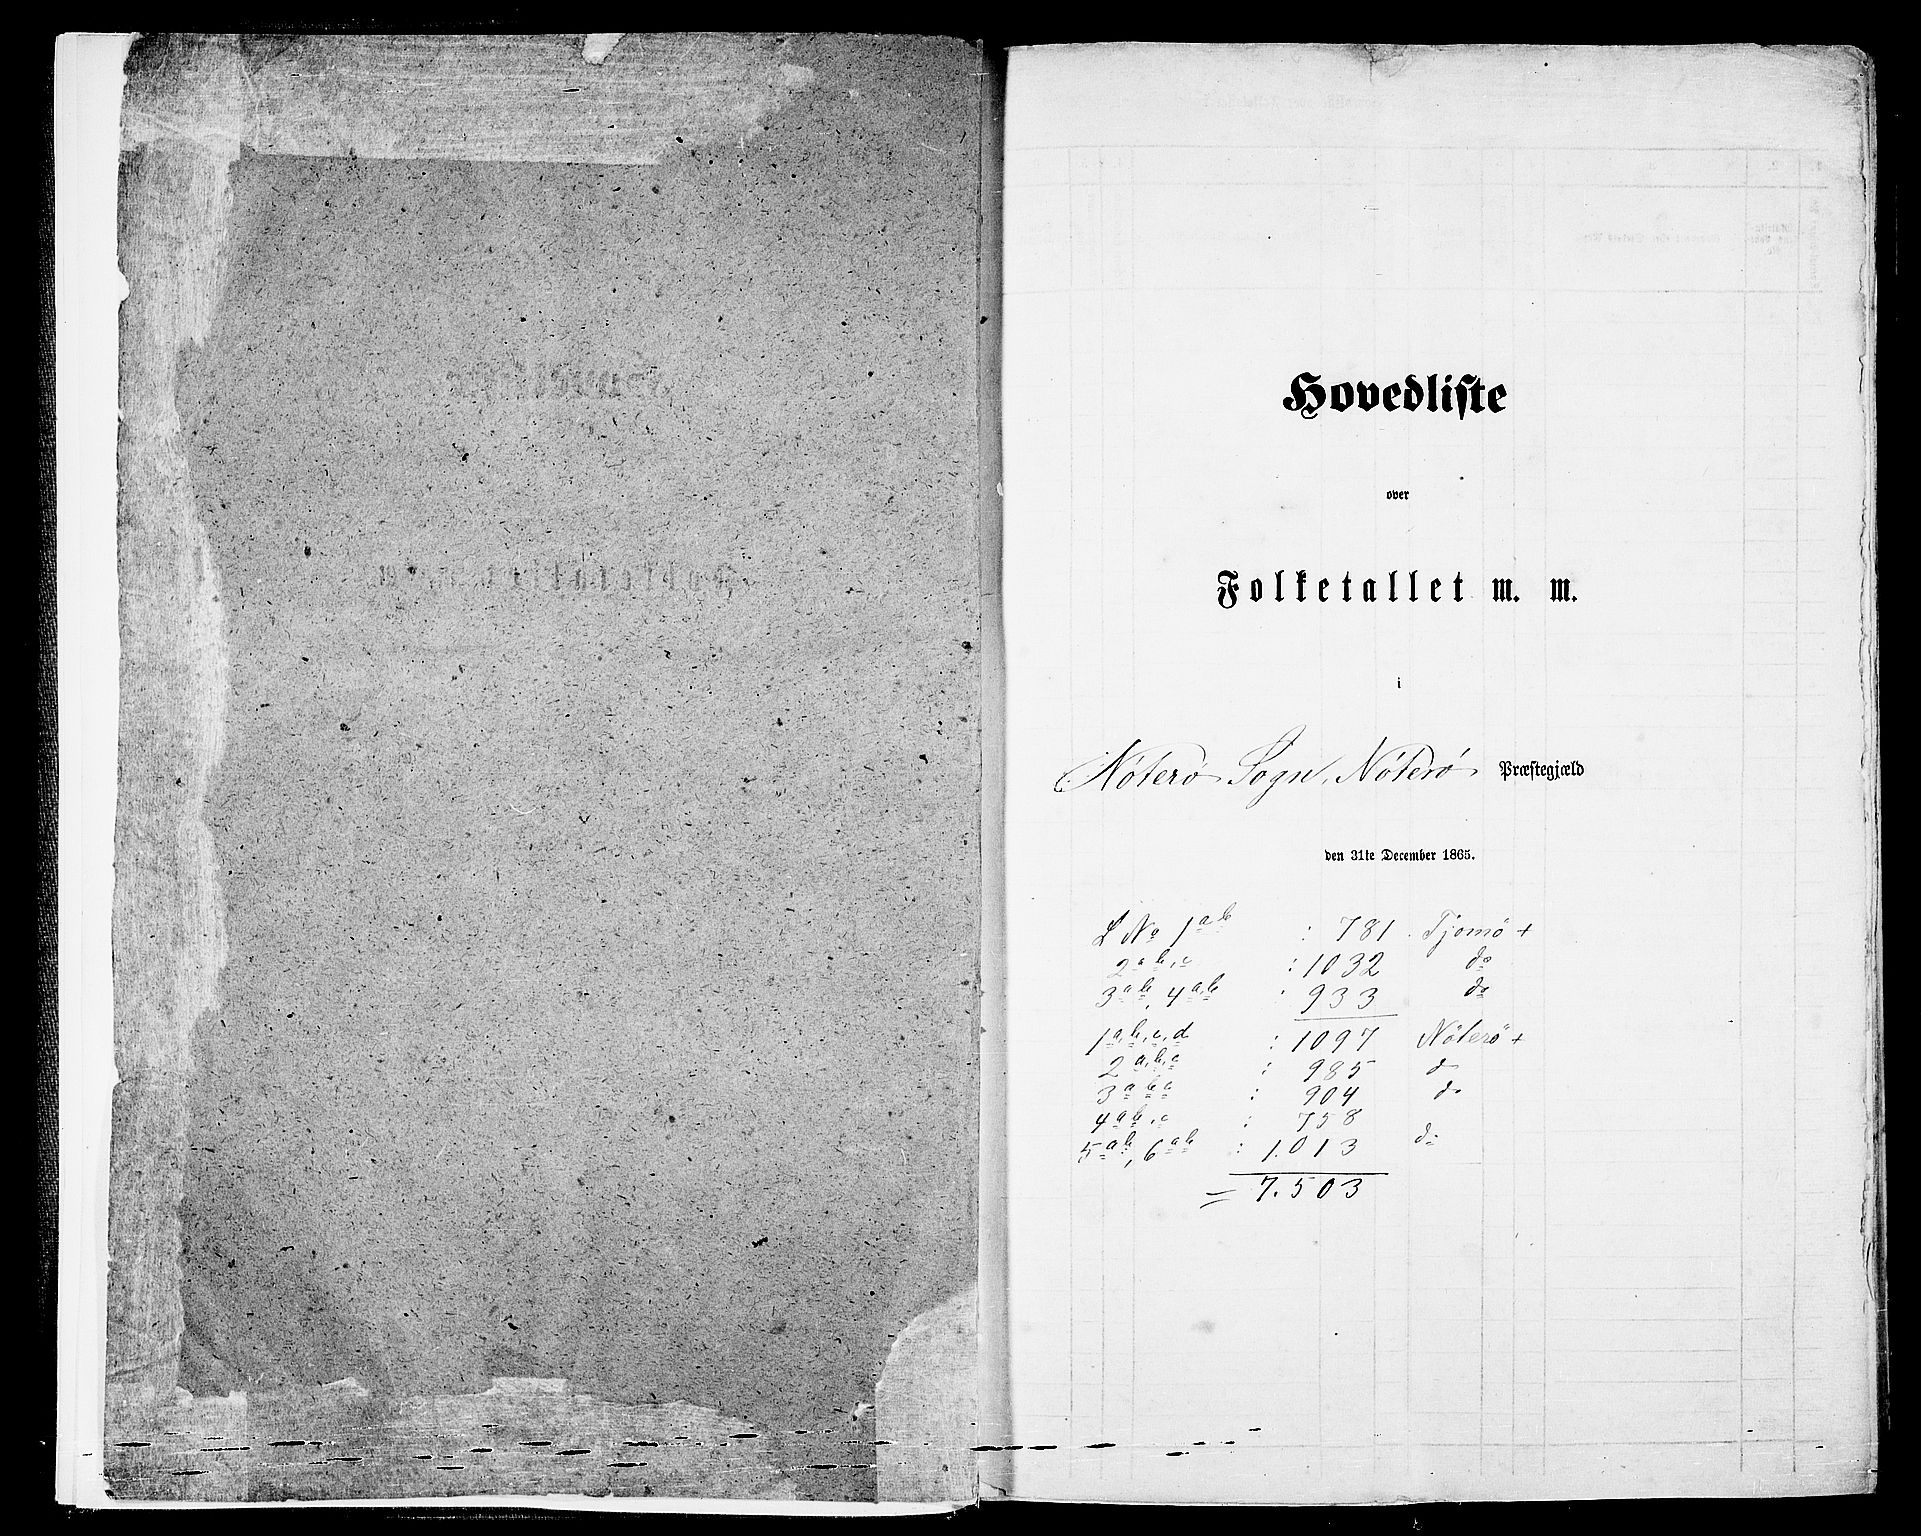 Hovedliste
over
Folketallet m. m.
i
Nöterö Sogn, Nöterö Præstegjæld
den 31te December 1865.
L No 1 a b : 781. Tjømö +
2 a, b, c : 1032 do
3 a b, 4 a b : 933 do
1 a, b, c, d : 1097 Nöterö +
2 a, b, c : 985 do
3 a b c : 904 do
4 a b, c : 758
5 a b, 6 a b : 1.013 do
= 7.503